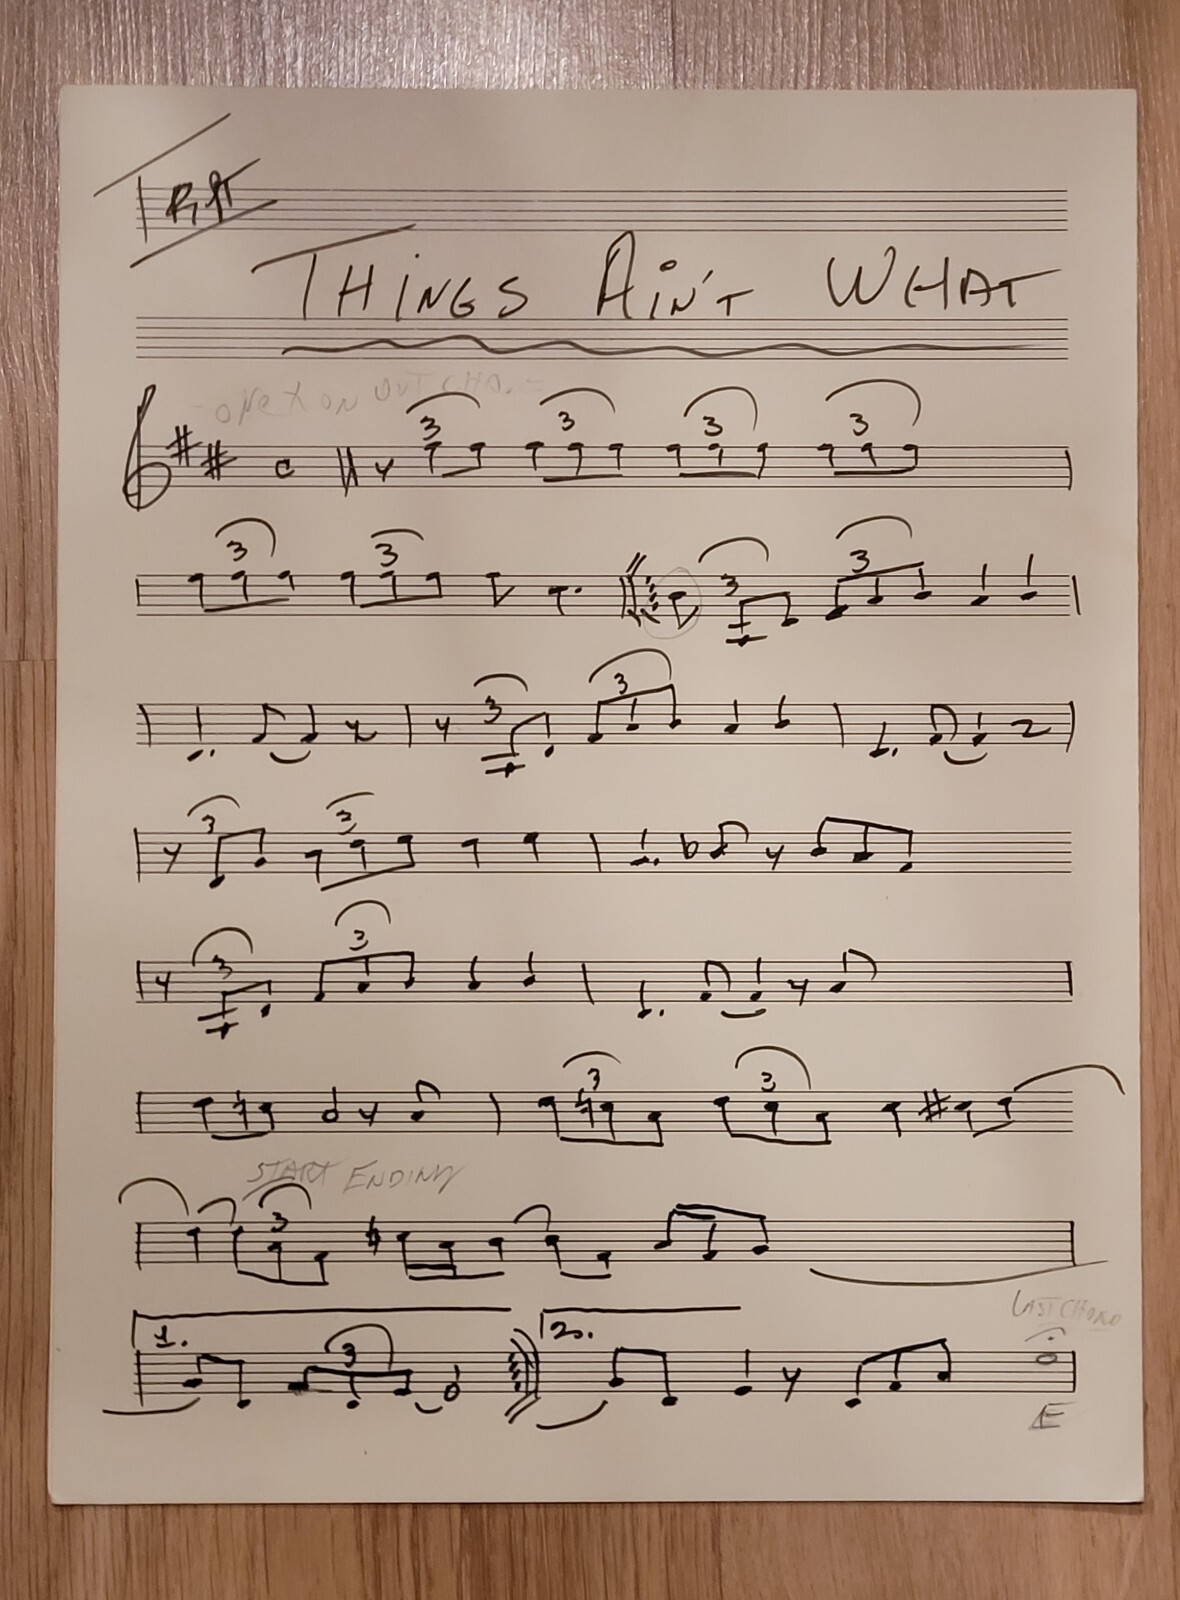 TRPT
THiNGS AiN'T WHAT
ONE X ON OUT CHO.
3 3 3 3
3 3 3 3
3 3
3 3
3 3
3 3
START ENDING
3
LAST CHORD
1. 3 2.
E